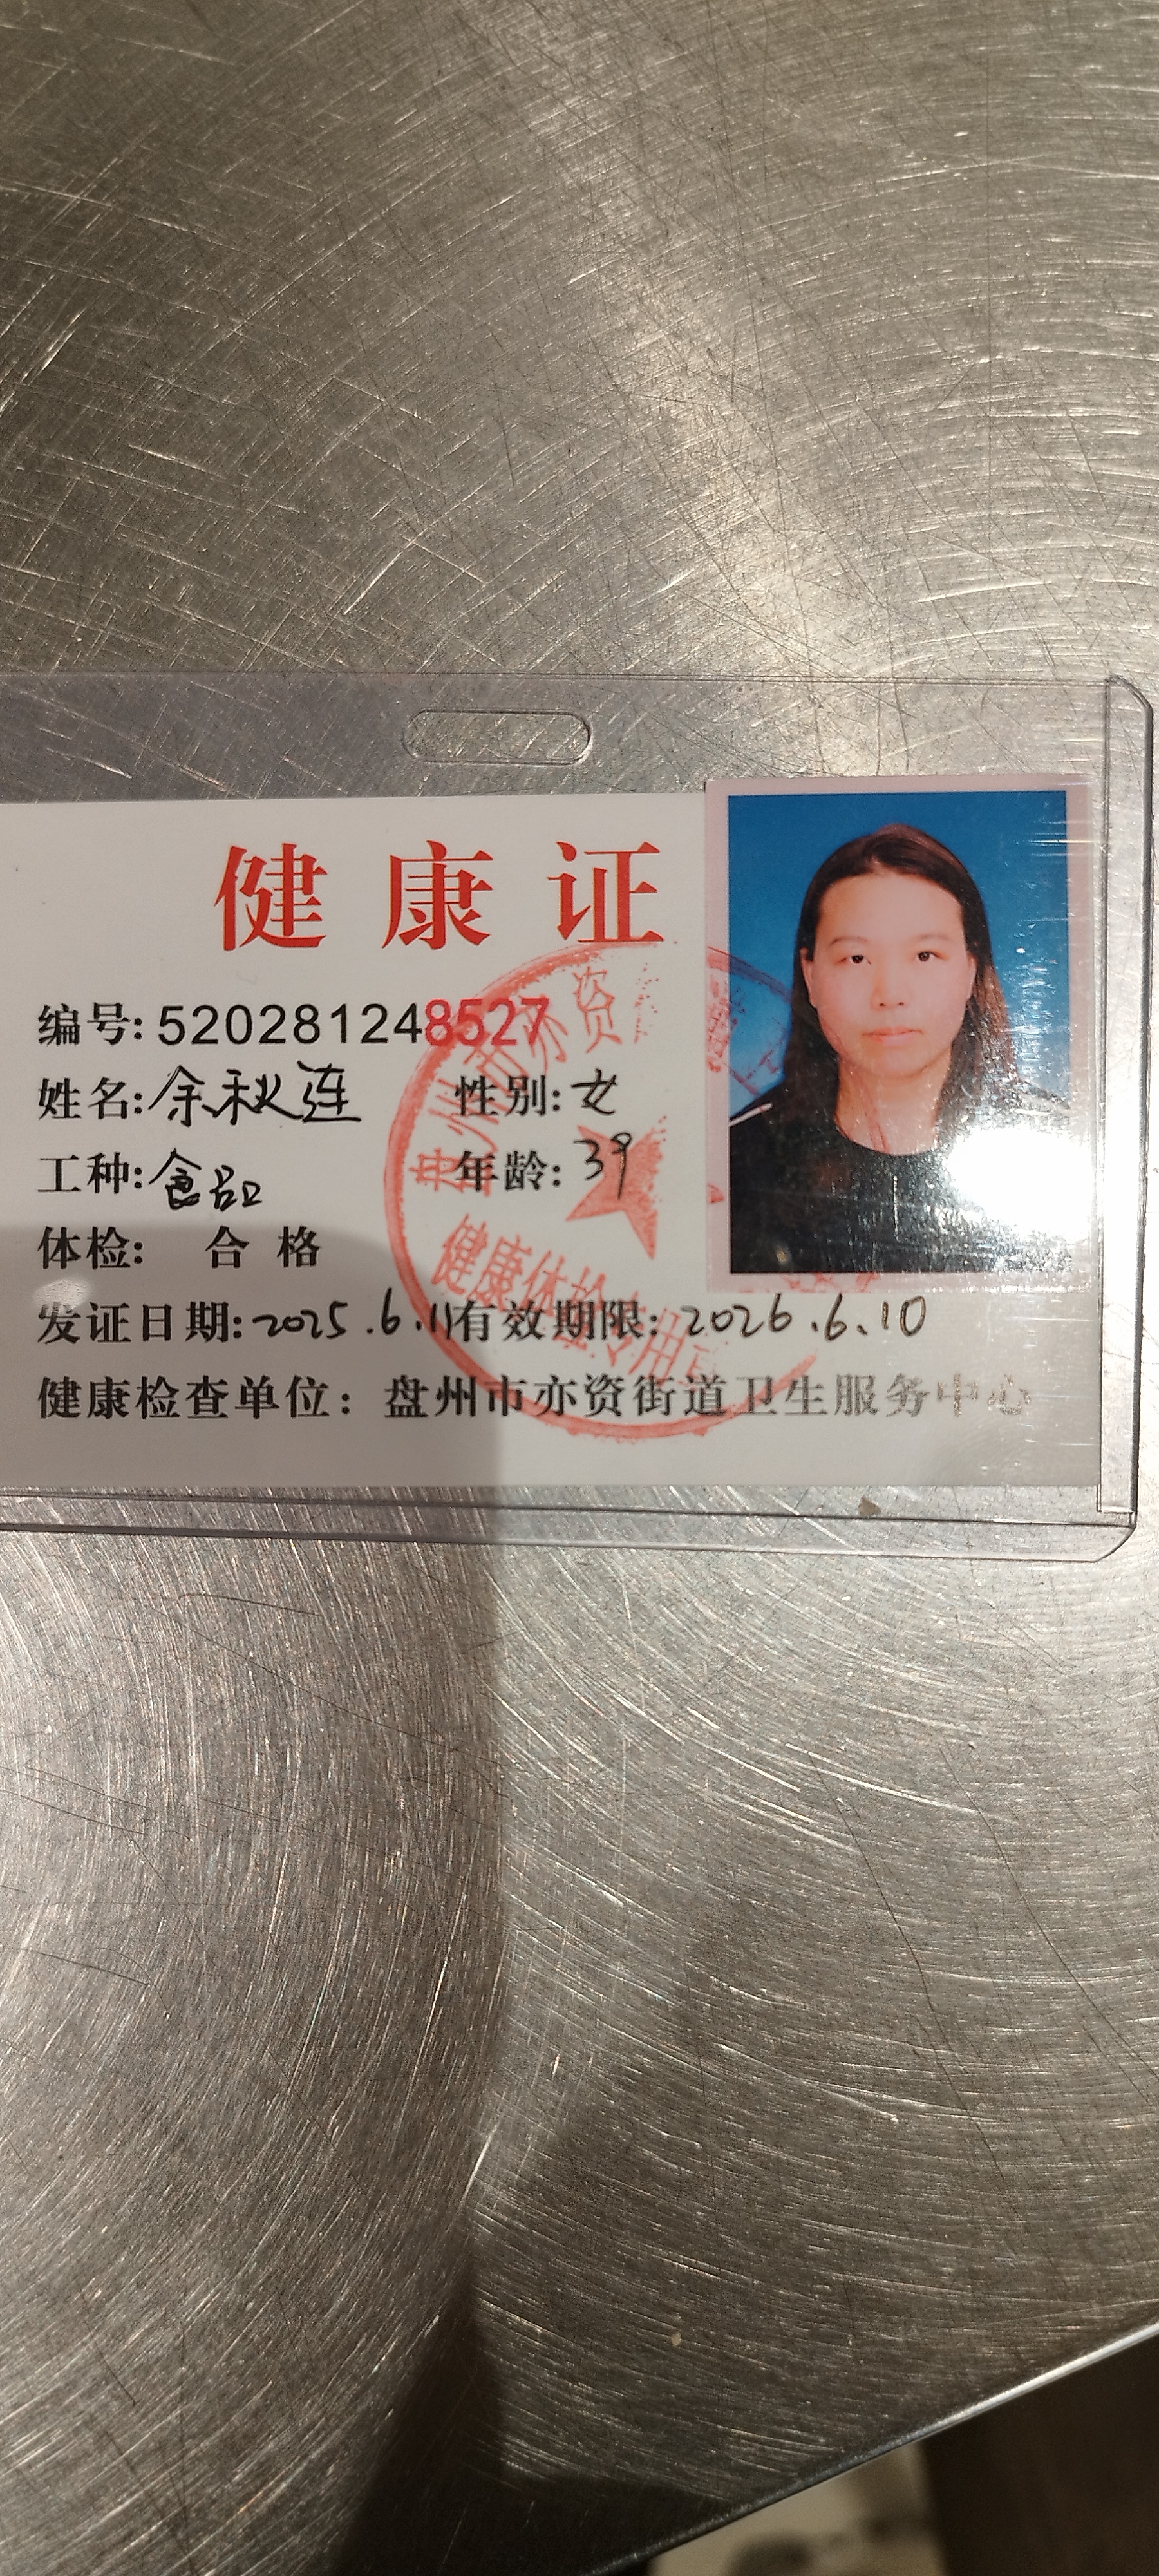 健康证
编号:520281248527
姓名:余秋连 性别:女
工种:食品 年龄:39
体检: 合格
发证日期:2025.6.11 有效期限: 2026.6.10
健康检查单位: 盘州市亦资街道卫生服务中心
盘州市亦资
健康体检专用章